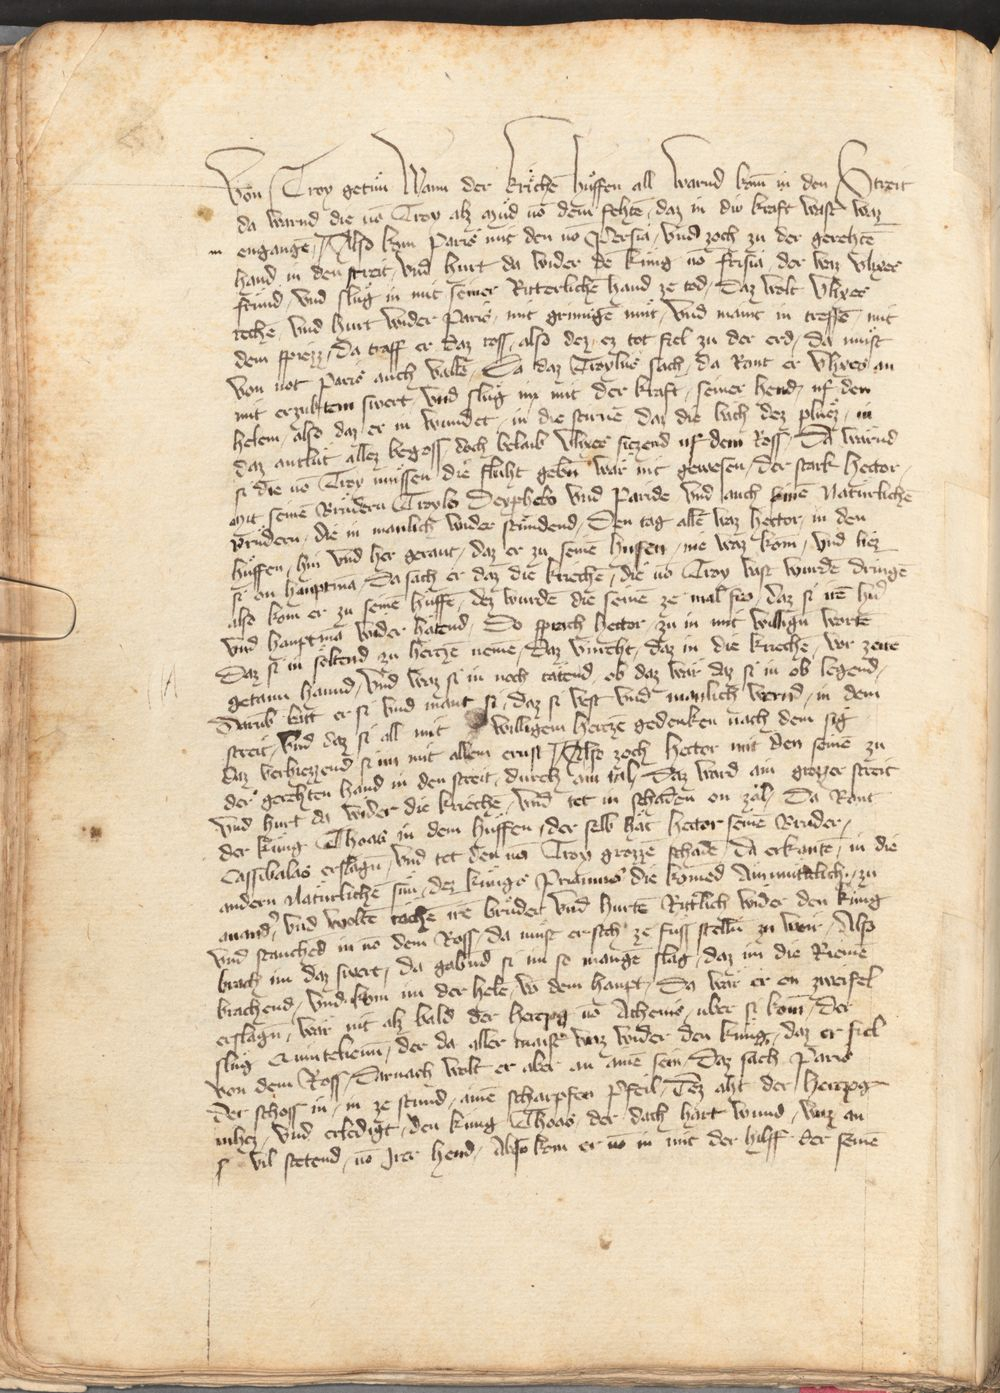 Von Troy getün Wann der kriche hüffen all warnd kom in den Streit
da warnd die vō Troy alz müd vō dem fehtē / daz in dü kraft vast waz
engangē / Also kam Paris mit den vō Persia / vnd zoch zu der gerehtē
hand in den streit / vnd hurt da wider dē küng vō frisia / der waz Vlixes
fründ / vnd slüg in mit seiner Ritterlichē hand ze tod / Daz wolt Vlixes
rechē / vnd hurt wider Paris / mit grimigē müt / vnd maint in treffē / mit
dem spiezz / da traff er daz ross / also dez / ez tot fiel zu der erd / da müst
von not Paris auch vallē / Da daz Troylus sach / da Rant er Vlixes an
mit erzuktem swert / vnd slüg im mit der kraft / seiner hend / uf den
helem / also daz er in wundet / in die stirnē daz die bäch dez plütz / in
daz antlüt allez begoss / doch belaib Vlixes sitzend uf dem Ross / Da wärnd
si die vō Troy müssen die fluht gebn wär nit gewesen / der stark hector /
mit seinē Brüdern Troylo Deyphebo vnd Paride vnd auch sinē Natürlichē
Brüdern / die in manlich wider stündend / Den tag allē waz hector / in den
hüffen / hin vnd her gerant / daz er zu seinē hufen / nie waz kom / vnd liez
si on hauptmā / Da sach er daz die kriechē / die vō Troy vast wurdē dringē
also kom er zu seinē hüffē / dez wurdē die seinē ze mal fro / daz si irē hr̄
vnd hauptmā wider hatend / Do sprach hector / zu in mit willign wortē
Daz si in söltend zu hertzē nemē / daz vnreht / daz in die kriechē / vor zeitē
getann hannd / vnd waz si in noch tätend / ob daz wär daz si in ob legend /
Darūb batt er si vnd mant si / daz si vest vnd manlich wernd / in dem
streit / vnd daz si all mit willigem hertzē gedenken nach dem sig
daz verhiezzend si im mit allem ernst / Also zoch hector mit den seinē zu
der gerehten hand in den streit / durch ain tal / Daz ward ain grozzer streit
vnd hurt da wider die kriechē / vnd tet in schaden on zal / Da Rant
der küng Thoas in dem hüffen / der selb hät hector seinē Brüder /
Cassibalas erslagn / vnd tet den vō Troy grozzē schadē da erkantē / in die
andern Natürlichē sün / dez küngs Priamus die komed Ainmütklich / zu
anand / vnd woltē rachē irē brüder vnd hurtē Ritlich wider den küng
vnd stauched in vō dem Ross / da müst er sich ze fuss stelln zu wer / Also
brach im daz swert / da gabnd si im so mangē slag / daz im die Riemē
brachend / vnd kom im der helē / vō dem haupt / Da wär er on zweifel
erslagn / wär nit alz bald der hertzog vō Athenis / uber si kom / der
slüg Quintelienū / der da aller maist waz wider den küng / daz er fiel
von dem Ross / Darnach wolt er aber an ainē sein / Daz sach Paris
der schoss in / in ze stund / ainē scharpfen Pfeil / Dez aht der hertzog
nihcz / vnd erledigt / den küng Thoas / der dach hart wund / waz an
vil stetend / vō Irer hend / Also kom er vō in mit der hilff der seinē